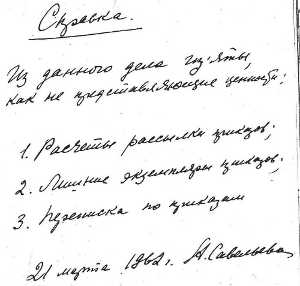 Справка.
Из данного дела изъяты,
как не представляющие ценности:
1. Расчеты рассылки приказов;
2. Лишние экземпляры приказов;
3. Переписка по приказам
21 марта 1962 г. А. Савельева